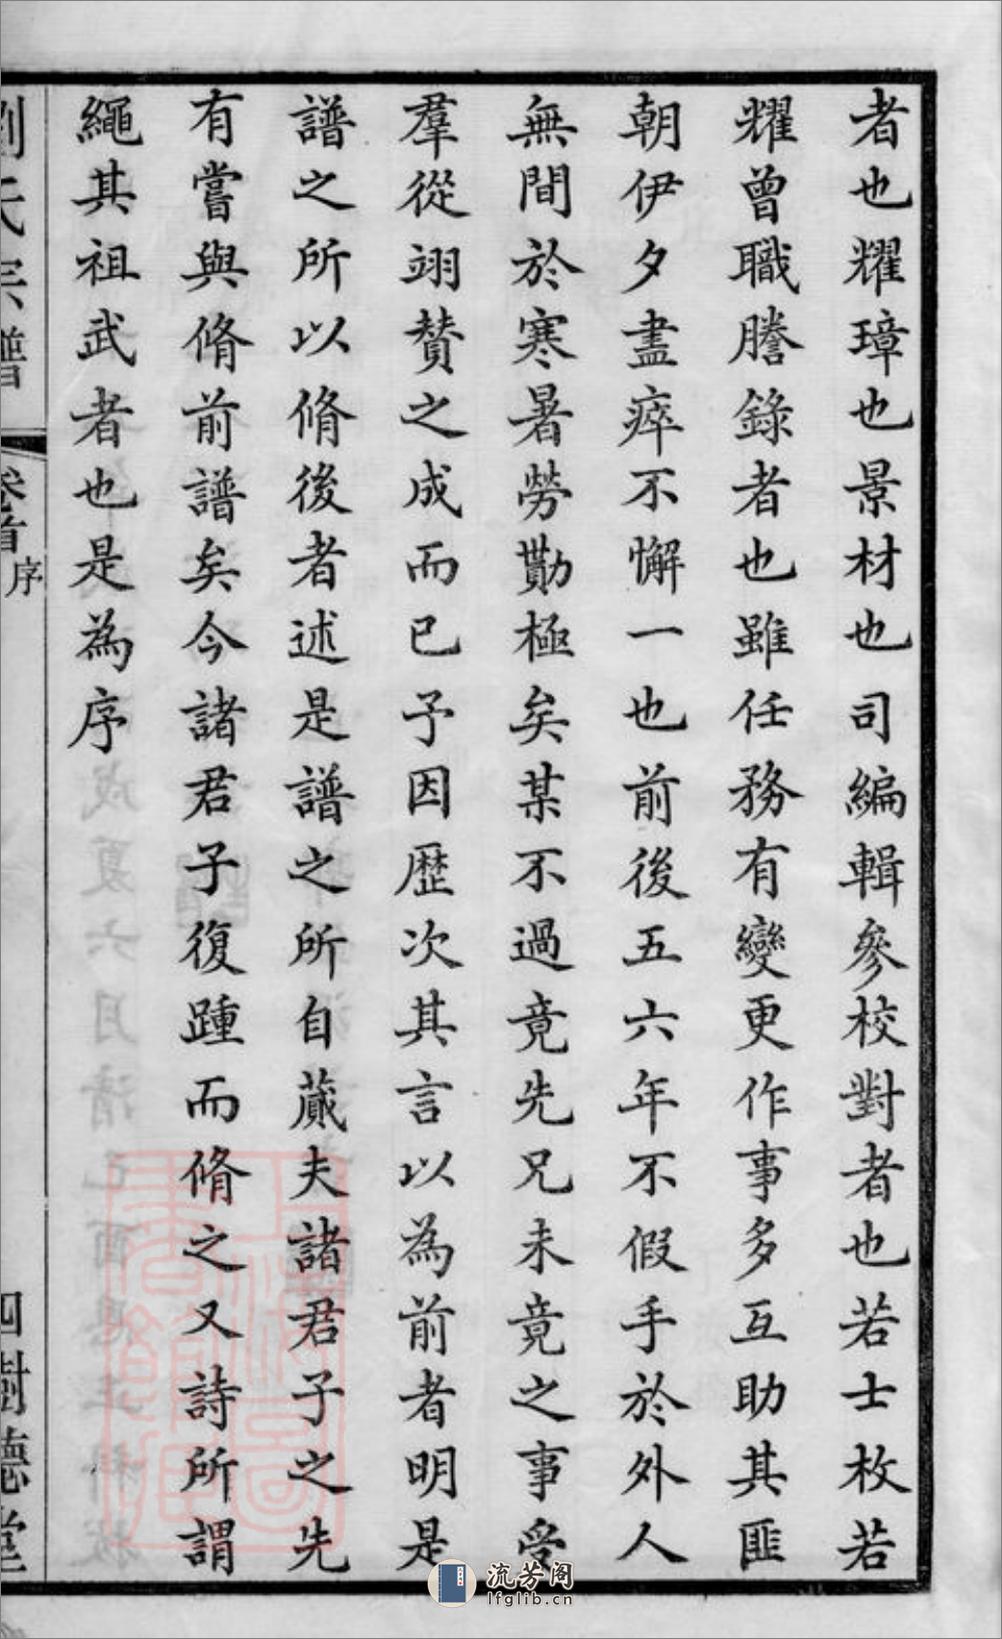 者也耀璋也景材也司編輯參校對者也若士枚若
耀曾職謄錄者也雖任務有變更作事多互助其匪
朝伊夕盡瘁不懈一也前後五六年不假手於外人
無間於寒暑勞勩極矣某不過竟先兄未竟之事受
羣從翊贊之成而已予因歷次其言以為前者明是
譜之所以脩後者述是譜之所自蕆夫諸君子之先
有嘗與脩前譜矣今諸君子復踵而脩之又詩所謂
繩其祖武者也是為序
劉氏宗譜
卷首
序
四
樹德堂
流芳阁
lfglib.cn